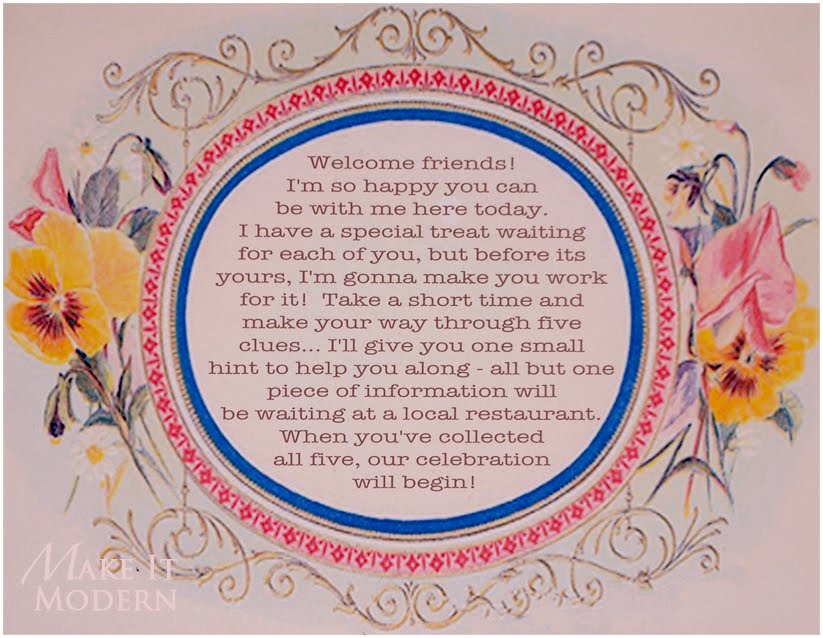 Welcome friends!
I'm so happy you can
be with me here today.
I have a special treat waiting
for each of you, but before its
yours, I'm gonna make you work
for it! Take a short time and
make your way through five
clues... I'll give you one small
hint to help you along - all but one
piece of information will
be waiting at a local restaurant.
When you've collected
all five, our celebration
will begin!
Make It
Modern